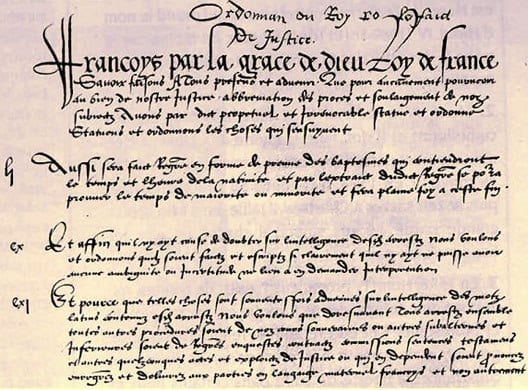 Ordonnan du Roy sur le faict
de Justice.
Francoys par la grace de dieu Roy de france
Sauoir faisons a Tous presens et aduenir Que pour aucunement pourueoir
au bien de nostre Justice abbreuiation des proces et soulaigement de noz
subiectz Auons par edict perpetuel et Irreuocable statue et ordonne
Statuons et ordonnons les choses qui sensuyuent
Aussi sera faict Regre en forme de preuue des baptesmes qui contiendront
le temps et lheure de la natiuite et par lextraict dudict Regre se porra
prouuer le temps de maiorite ou minorite et fera plaine foy a ceste fin
cx Et affin quil ny ayt cause de doubter sur lintelligence desdz arrestz Nous voulons
et ordonnons quilz soient faictz et escriptz si clairement quil ny ayt ne puisse auoir
aucune ambiguite ou Incertitude ne lieu a en demander Interpretation
cxj Et pource que telles choses sont souuentesfois aduenues sur lintelligence des motz
latins contenuz esdz arrestz Nous voulons que doresnauant Tous arrestz ensemble
toutes autres procedures soient de noz cours souueraines ou autres subalternes et
Inferieures soient de Regres enquestes contractz commissions sentences testamens
et autres quelzconques actes et exploictz de Justice ou qui en dependent soient prononcez
enregrez et deliurez aux parties en langaige maternel francoys et non autrement